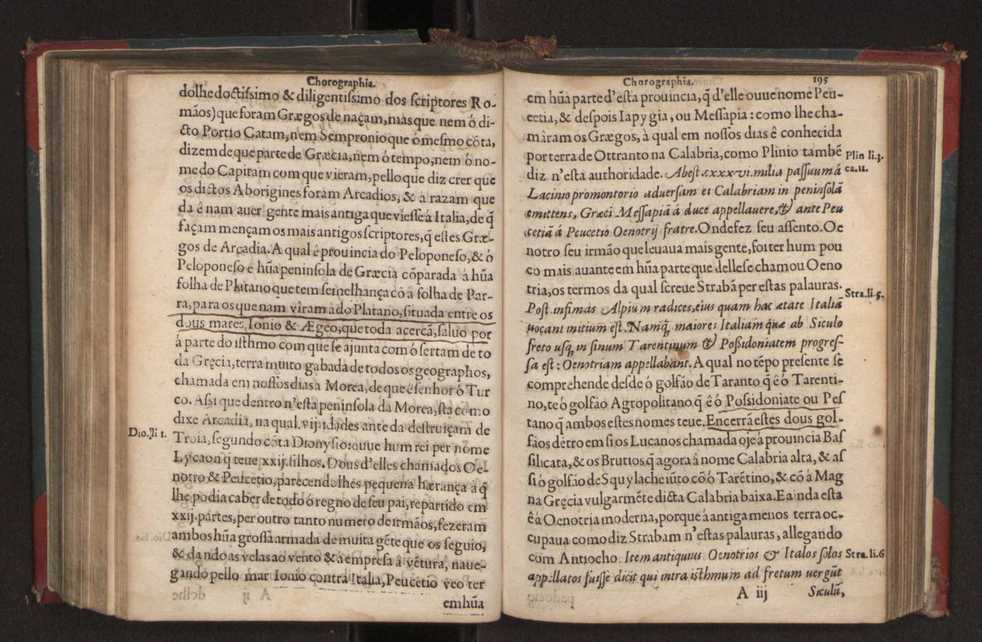 Chorographia.
dolhe doctissimo & diligentissimo dos scriptores Ro-
mãos) que foram Grægos de naçam, mas que nem ó di-
cto Portio Catam, nem Sempronio que ó mesmo cõta,
dizem de que parte de Græcia, nem ó tempo, nem ó no-
me do Capitam com que vieram, pello que diz crer que
os dictos Aborigines foram Arcadios, & á razam que
da é nam auer gente mais antiga que viesse á Italia, de q̃
façam mençam os mais antigos scriptores, q̃ estes Græ-
gos de Arcadia. A qual é prouincia do Peloponeso, & ó
Peloponeso é hũa peninsola de Græcia cõparada á hũa
folha de Platano que tem semelhança cõ á folha de Par-
ra, para os que nam viram á do Platano, situada entre os
dous mares, Ionio & Ægeo, que toda á cercã, saluo por
á parte do isthmo com que se ajunta com ó sertam de to
da Grecia, terra muito gabada de todos os geographos,
chamada em nossos dias á Morea, de que é senhor ó Tur
co. Assi que dentro n'esta peninsola da Morea, sta como
dixe Arcadia, na qual. vij. idades ante da destruiçam de
Dio. li 1.
Troia, segundo cõta Dionysio: ouue hum rei per nome
Lycaon q̃ teue. xxij. filhos. Dous d'elles chamados Oe-
notro & Peucetio, parecendolhes pequena hærança á q̃
lhe podia caber de todo ó regno de seu pai, repartido em
xxij. partes, per outro tanto numero de irmãos, fezeram
ambos hũa grossa armada de muita gẽte que os seguio,
& dando as velas ao vento & á empresa á vẽtura, naue-
gando pello mar Ionio contra Italia, Peucetio veo ter
em hũa
Chorographia. 195
em hũa parte d'esta prouincia, q̃ d'elle ouue nome Peu-
cetia, & despois Iapygia, ou Messapia: como lhe cha-
máram os Grægos, à qual em nossos dias é conhecida
por terra de Ottranto na Calabria, como Plinio tambẽ
Plin li. 3.
ca. 11.
diz n'esta authoridade. Abest. cxxxvi. milia passuum á
Lacinio promontorio aduersam ei Calabriam in peninsolã
emittens, Græci Messapiã á duce appellauere, & ante Peu
cetiã á Peucetio Oenotrij fratre. Onde fez seu assento. Oe
notro seu irmão que leuaua mais gente, foi ter hum pou
co mais auante em hũa parte que delle se chamou Oeno
tria, os termos da qual screue Strabã per estas palauras.
Stra. li. 5.
Post infimas Alpium radices, eius quam hac ætate Italiã
uocant initium est. Namq̃, maiores Italiam quæ ab Siculo
freto usq̃, in sinum Tarentinum & Possidoniatem progres-
sa est: Oenotriam appellabant. A qual no tẽpo presente se
comprehende desde ó golfão de Taranto q̃ é ó Tarenti-
no, té ó golfão Agropolitano, q̃ é ó Possidoniate ou Pes
tano q̃ ambos estes nomes teue. Encerrã estes dous gol-
fãos dẽtro em si os Lucanos chamada oje á prouincia Bas
silicata, & os Brutios q̃ agora á nome Calabria alta, & as
si ó golfão de Squylache iũto cõ ó Tarẽtino, & cõ á Mag
na Grecia vulgarmẽte dicta Calabria baixa. E ainda esta
é á Oenotria moderna, porque á antiga menos terra oc-
cupaua como diz Strabam n'estas palauras, allegando
com Antiocho. Item antiquius Oenotrios & Italos solos
Stra. li. 6
appellatos fuisse dicit qui intra isthmum ad fretum uergũt
A iij Siculũ,